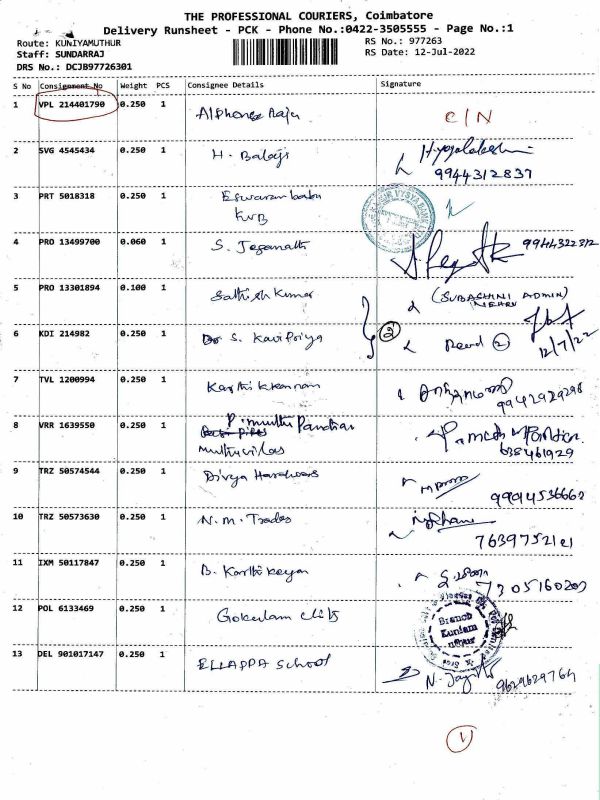 THE PROFESSIONAL COURIERS, Coimbatore
Delivery Runsheet - PCK - Phone No.:0422-3505555 - Page No.:1
Route: KUNIYAMUTHUR
Staff: SUNDARRAJ
DRS No.: DCJB97726301
RS No.: 977263
RS Date: 12-Jul-2022
S No Consignment No Weight PCS Consignee Details Signature
1 VPL 214401790 0.250 1 Alphonse Raju C/N
2 SVG 4545434 0.250 1 H. Balaji
9944312837
3 PRT 5018318 0.250 1
KVB
4 PRO 13499700 0.060 1 S. Jeganath 9944322312
5 PRO 13301894 0.100 1 Sathish Kumar (SUBASHINI ADMIN)
NEHRU
6 KDI 214982 0.250 1 S. Kavipriya 2 Recvd 2
12/7/22
7 TVL 1200994 0.250 1 Karthikkannan
9942929298
8 VRR 1639550 0.250 1 P. muthu Pandian
muthuvilas
9 TRZ 50574544 0.250 1 Divya Hardwares
9994536662
10 TRZ 50573630 0.250 1 N.M. Trades
7639752121
11 IXM 50117847 0.250 1 B. Karthikeyan
7305160203
12 POL 6133469 0.250 1 Gokulam
Branch
13 DEL 901017147 0.250 1 ELLAPPA School
9629629764